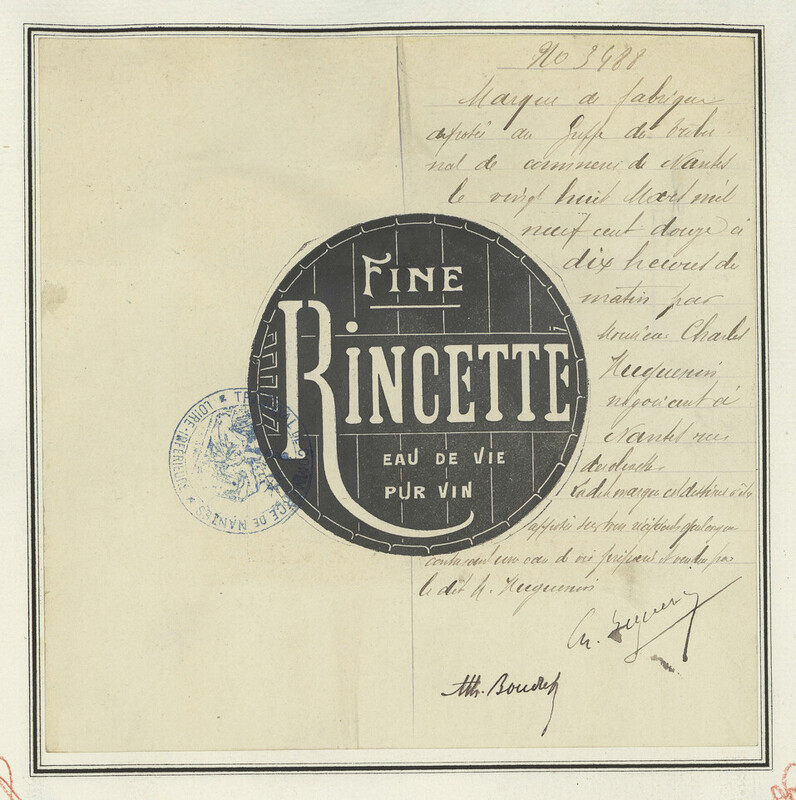 No 3488
Marque de fabrique
déposée au Greffe du Tribu-
nal de commerce de Nantes
le vingt huit Mars mil
neuf cent douze à
dix heures du
matin par
Monsieur Charles
Huguenin
négociant à
Nantes rue
La dite marque est destinée à être
apposée sur tous récipients quelconques
contenant une eau de vie préparée et vendue par
le dit M. Huguenin
FINE
RINCETTE
EAU DE VIE
PUR VIN
TRIBUNAL DE COMMERCE DE NANTES
LOIRE-INFERIEURE
Ch. Huguenin